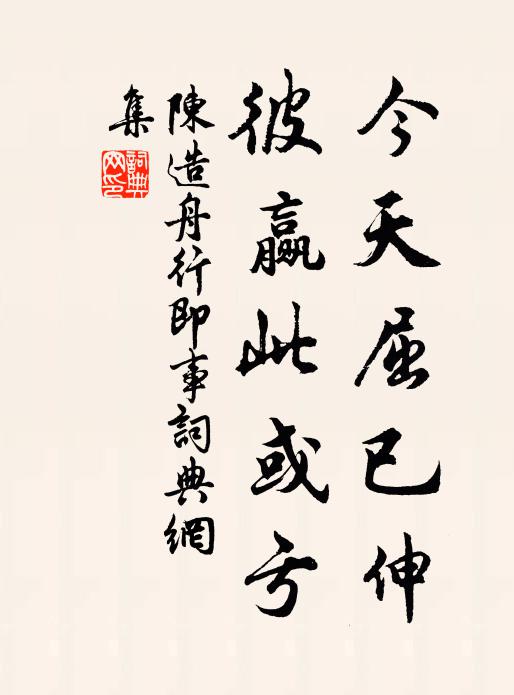 今天屈已伸
彼贏此或亏
陳造舟行即事詞典網
集
詞典
网印